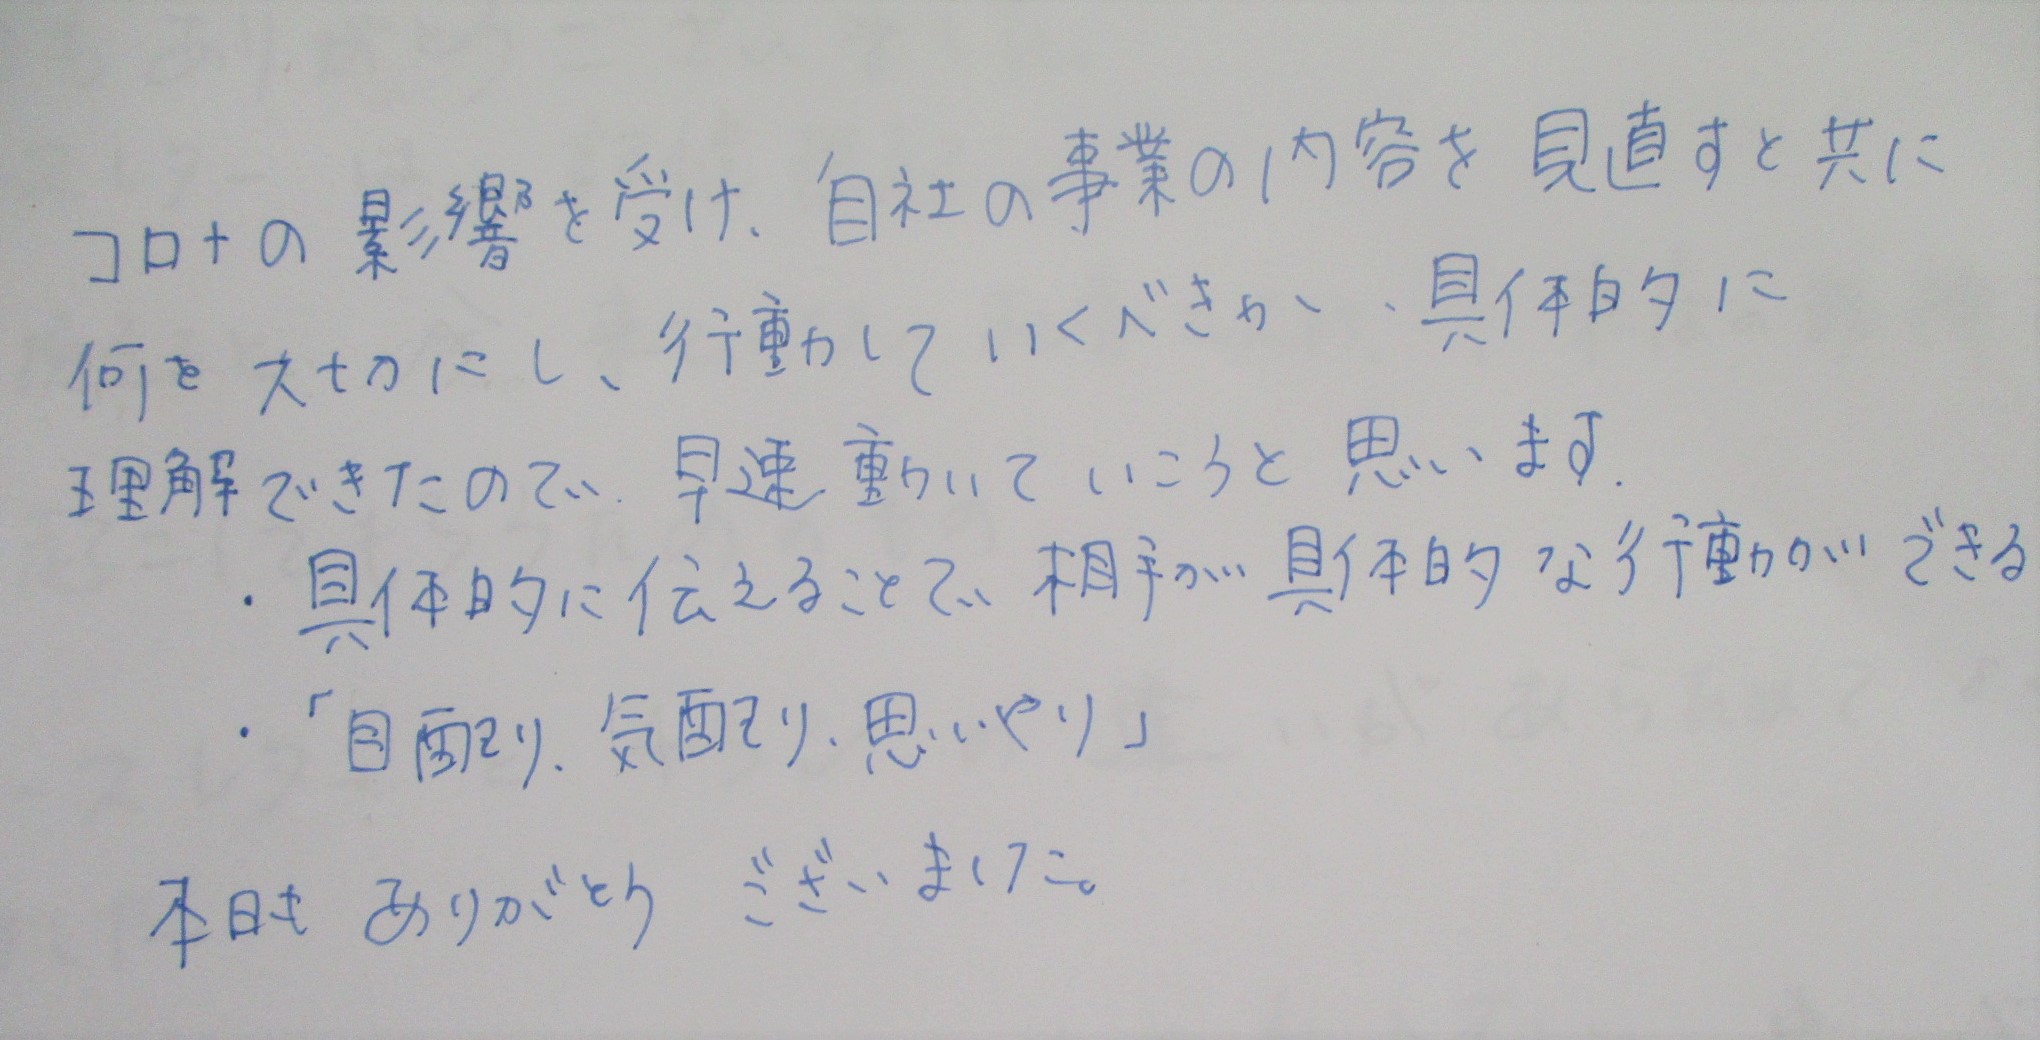 コロナの影響を受け、自社の事業の内容を見直すと共に
何を大切にし、行動していくべきか、具体的に
理解できたので、早速動いていこうと思います。
・具体的に伝えることで、相手が具体的な行動ができる
・「目配り、気配り、思いやり」
本日もありがとうございました。